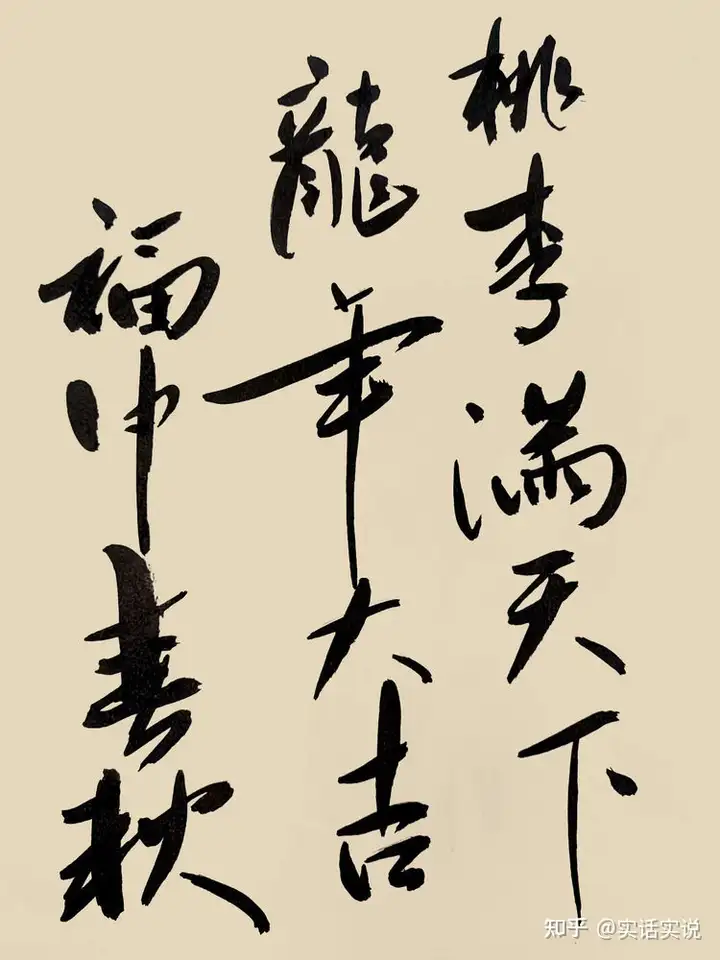 桃李满天下
龍年大吉
福中
知乎 @实话实说